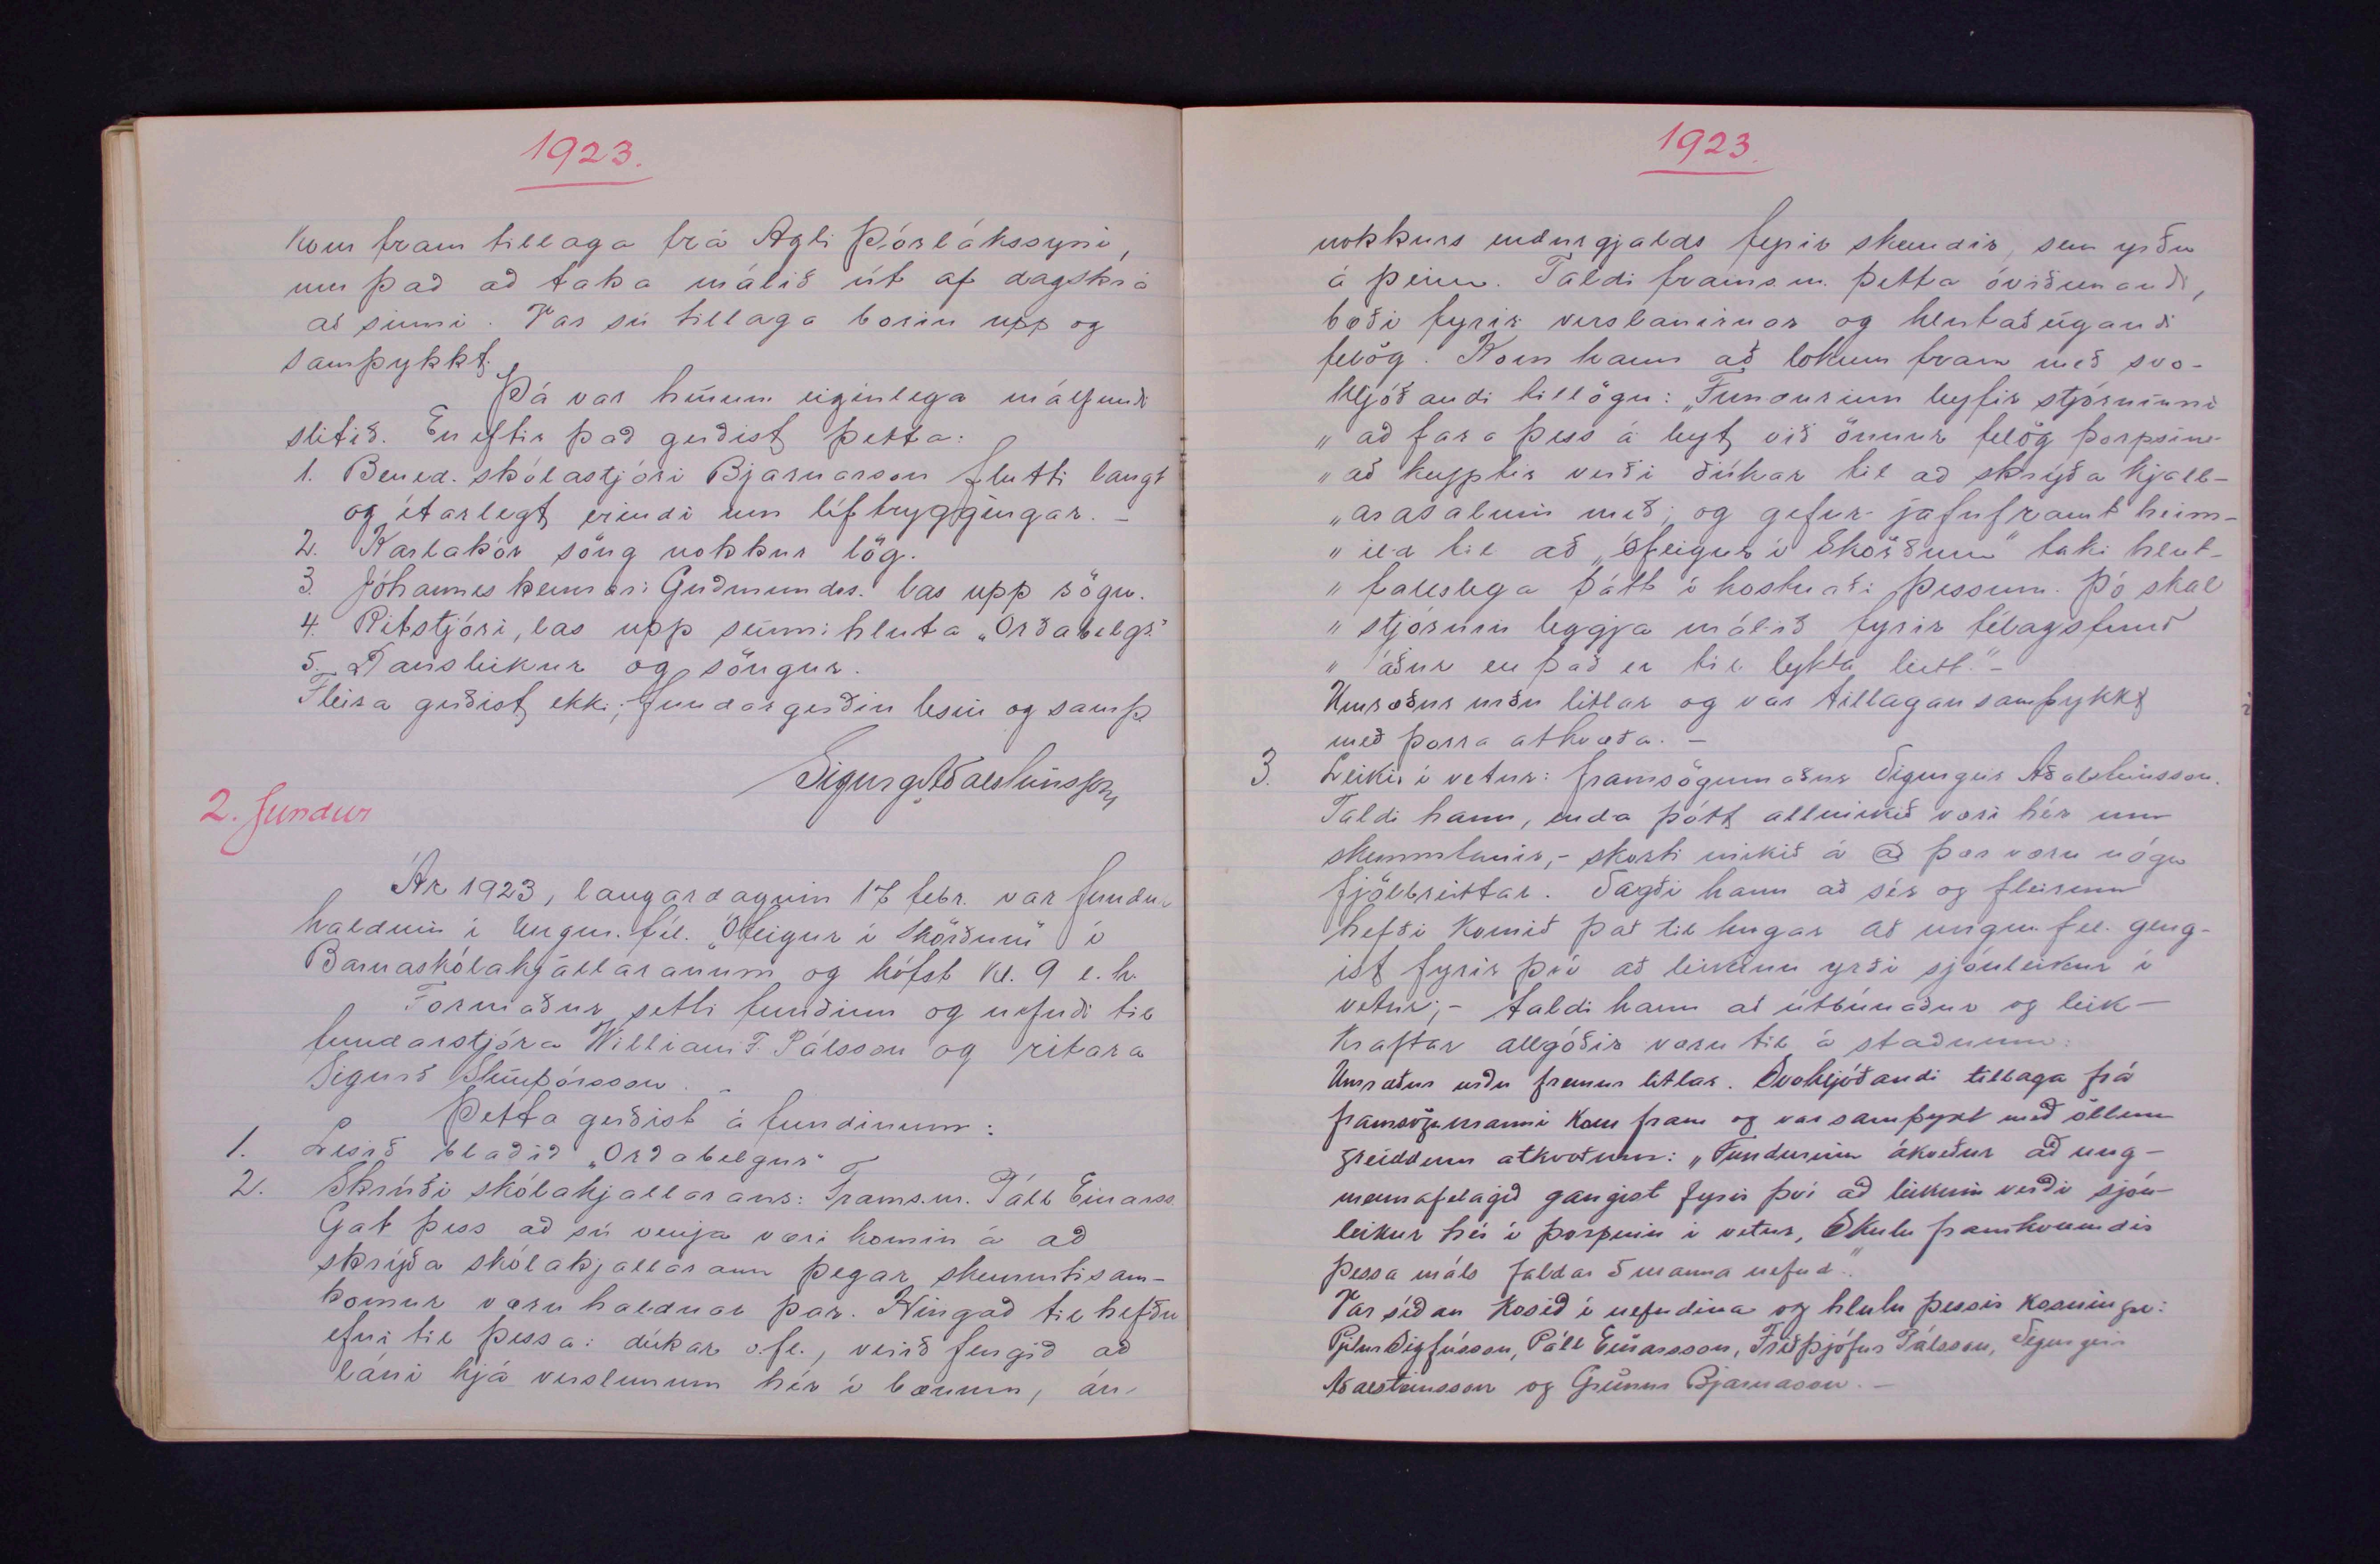 1923.
Kom fram tillaga frá Agli Þórlákssyni,
um það að taka málið út af dagskrá
að sinni. Var sú tillaga borin upp og
samþykkt.
Þá var hinum eiginlega málfundi
slitið. En eftir það gerðist þetta:
1. Bened. skólastjóri Bjarnarson flutti langt
og ítarlegt erindi um líftryggingar. –
2. Karlakór söng nokkur lög.
3. Jóhannes kennari Guðmundss. las upp sögu.
4. Ritstjóri, las upp seinni hluta „Orðabelgs."
5. Dansleikur og söngur.
Fleira gerðist ekki; fundargerðin lesin og samþ
Sigurg. Aðalsteinsson
2. fundur
Ár 1923, laugardaginn 17 febr. var fundur
haldinn í Ungm. fél. „Ófeigur í Skörðum" í
Barnaskólakjallaranum og hófst kl. 9 e. h.
Formaður setti fundinn og nefndi til
fundarstjóra William F. Pálsson og ritara
Sigurð Steinþórsson. –
Þetta gerðist á fundinum:
1. Lesið blaðið „Orðabelgur"
2. Skrúði skólakjallarans: Frams.m. Páll Einarss.
Gat þess að sú venja væri komin á að
skrýða skólakjallarann þegar skemmtisam-
komur væru haldnar þar. Hingað til hefðu
efni til þessa: dúkar o.fl., verið fengið að
láni hjá verslunum hér í bænum, án
1923.
nokkurs endurgjalds fyrir skemdir, sem yrðu
á þeim. Taldi frams.m. þetta óviðunandi,
bæði fyrir verslanirnar og hlutaðeigandi
félög. Kom hann að lokum fram með svo-
hljóðandi tillögu: „Fundurinn leyfir stjórninni
„ að fara þess á leyt við önnur félög þorpsins
„ að keyptir verði dúkar til að skrýða kjall-
„ arasalinn með; og gefur jafnframt heim-
„ ild til að „Ófeigur í Skörðum" taki hlut-
„ fallslega þátt í kostnaði þessum. Þó skal
„ stjórnin leggja málið fyrir félagsfund
„ áður en það er til lykta leitt." –
Umræður urðu litlar og var tillagan samþykkt
með þorra atkvæða. –
3. Leikir í vetur: framsögumaður Sigurgeir Aðalsteinsson.
Taldi hann, enda þótt allmikið væri hér um
skemmtanir, – skorti mikið á að þær væru nógu
fjölbreittar. Sagði hann að sér og fleirum
hefði komið það til hugar að ungm. fél. geng-
ist fyrir því að leikinn yrði sjónleikur í
vetur; – taldi hann að útbúnaður og leik-
kraftar allgóðir væru til á staðnum.
Umræður urðu fremur litlar. Svohljóðandi tillaga frá
framsögumanni kom fram og var samþykt með öllum
greiddum atkvæðum: „Fundurinn ákveður að ung-
mennafelagið gangist fyrir því að leikinn verði sjón-
leikur hér í þorpinu í vetur, Skulu framkvæmdir
þessa máls faldar 5 manna nefnd".
Var síðan kosið í nefndina og hlutu þessir kosningu:
Pjetur Sigfússon, Páll Einarsson, Friðþjófur Pálsson, Sigurgeir
Aðalsteinsson og Grímur Bjarnason. –